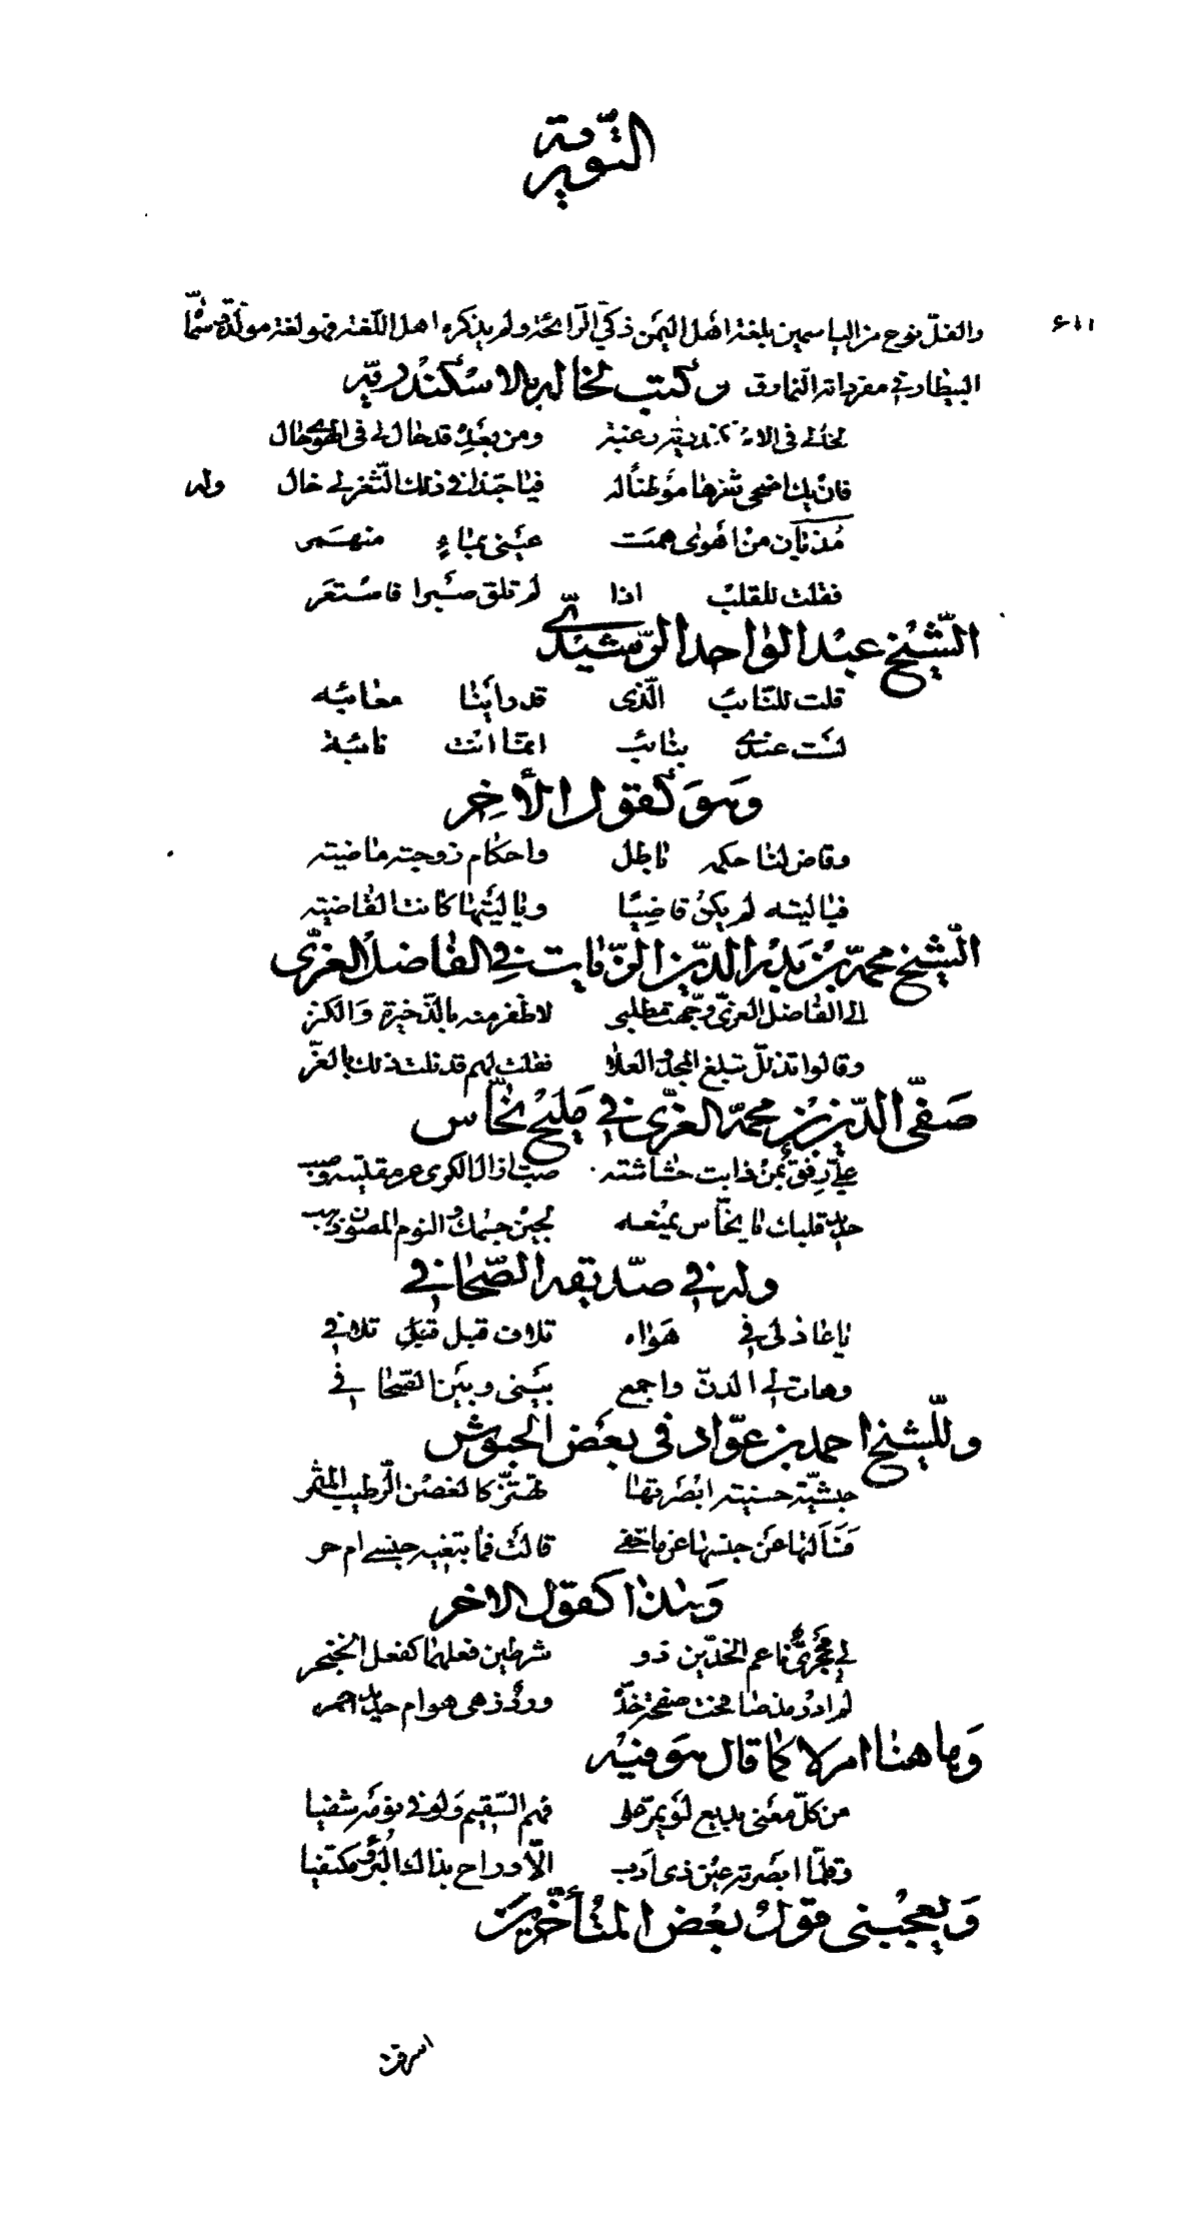 التورية
والفلّ نوع من الياسمين بلغة اهل اليمن ذكيّ الرّائحة ولم يذكره اهل اللّغة فهو لغة مولّدة سمّا
البيطار في مفرداته النمارق وكتب لخاله بالاسكندرية
لخالي في الاسكندرية رغبة ومن بعده قد حال لي في الهوى حال
فان يك اضحى ثغرها موطنا له فيا حبّذا في ذلك الثّغر لي خال وله
مذ بان من اهوى همت عيني بماء منهمر
فقلت للقلب اذا لم تلق صبرا فاستعر
الشّيخ عبد الواحد الرّشيدي
قلت للنّائب الّذي قد راينا معائبه
لست عندي بنائب انّما انت نائبة
وهو كقول الآخر
وقاض لنا حكمه باطل واحكام زوجته ماضية
فيا ليته لم يكن قاضيا ويا ليتها كانت القاضية
الشّيخ محمّد بن بدر الدّين الزّيات في الفاضل الغزّي
الى الفاضل الغزّي وجّهت مطلبي لاظفر منه بالذّخيرة والكنز
وقالوا تذلّل تبلغ المجد والعلا فقلت لهم قد نلت ذلك بالغزّ
صفيّ الدّين بن محمّد الغزّي في مليح نحّاس
عليّ رفق بمن ذابت حشاشته صبّ اذا الكرى عن مقلتيه
حديد قلبك نا يا نحّاس يمنعه لجين جسمك والنوم المصون ذهب
وله في صديقه الصّحافي
يا عاذلي في هواه تلاف قبل تلافي
وهات لي الدنّ واجمع بيني وبين الصّحافي
وللشّيخ احمد بن عوّاد في بعض الحبوش
حبشيّة حسنية ابصرتها تهتزّ كالغصن الرّطيب المثمر
فسألتها عن جنسها عن ما خفي قالت فما تبتغيه جنسي امحر
وهذا كقول الاخر
لي ناعم الخدّين ذو شرطين فعلهما كفعل الخنجر
لم ادر مذ تحت صفحة خدّه وردٌ زهى هو ام حديد احمر
وما هنا امر لا كما قال هو فيه
من كلّ معنى بديع لو يمرّ على فهم السّقيم ولو في نومه شفيا
وقلّما ابصرته عين ذي ادب الّا وراح بذاك البرق مكتفيا
ويعجبني قول بعض المتأخّرين